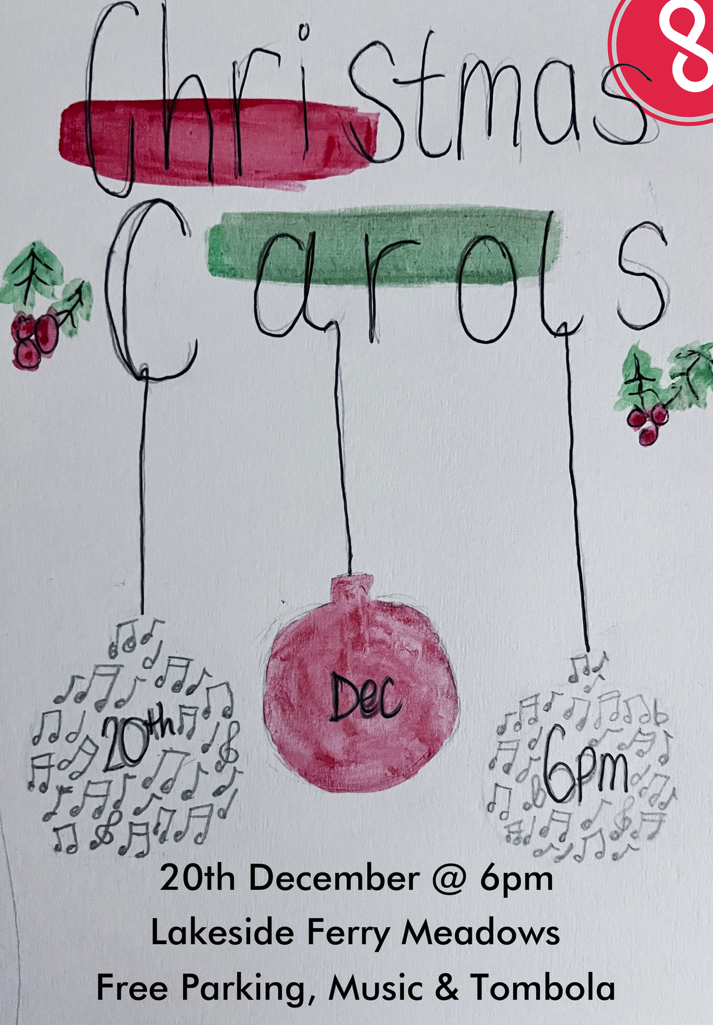 Christmas
Carols
20th
Dec
6pm
20th December @ 6pm
Lakeside Ferry Meadows
Free Parking, Music & Tombola